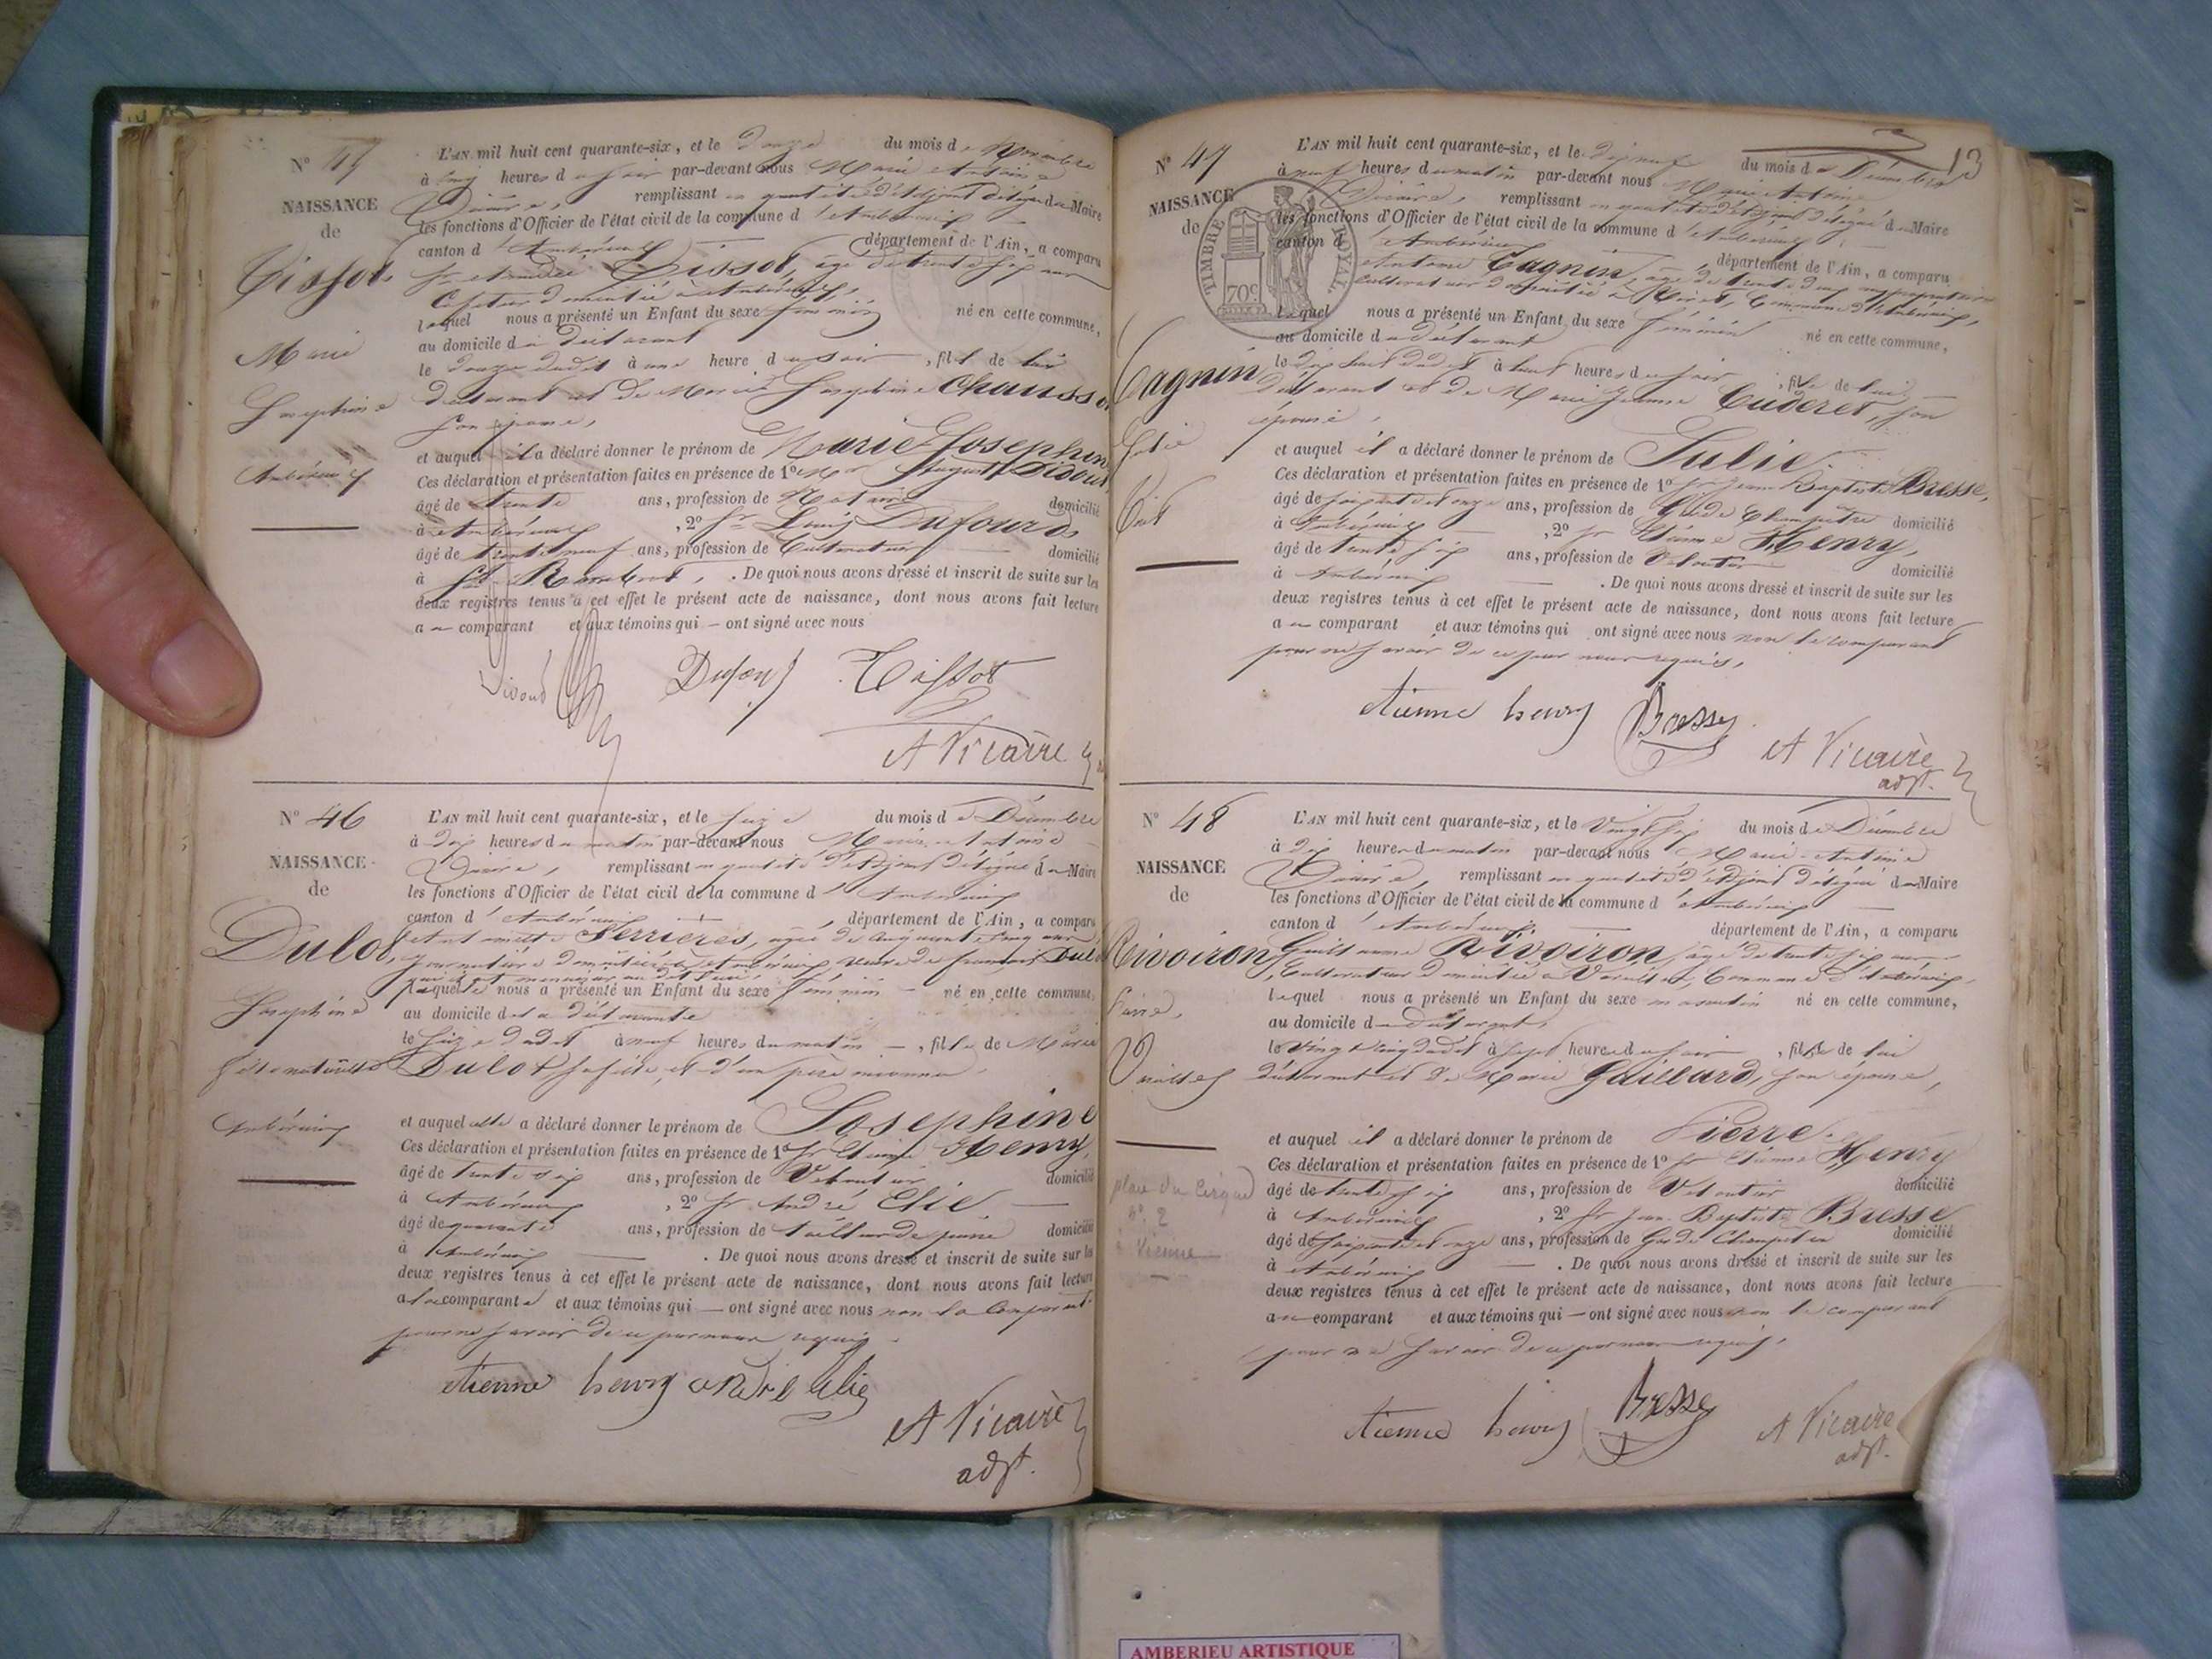 N°
NAISSANCE
de
Tissot
Marie
Josephine
Ambérieux
L'AN mil huit cent quarante-six, et le douze du mois de Novembre
à cinq heures du soir par-devant nous Marie Antoine
Vicaire, remplissant en qualité d'Adjoint délégué du Maire
les fonctions d'Officier de l'état civil de la commune d'Ambérieux
canton d'Ambérieux département de l'Ain, a comparu
Tissot, âgé de trente six ans
domicilié à Ambérieux,
lequel nous a présenté un Enfant du sexe féminin né en cette commune,
au domicile du déclarant
le douze dudit à une heure du soir, fille de lui
déclarant et de Marie Josephine
son épouse,
et auquel il a déclaré donner le prénom de Marie Josephine
Ces déclaration et présentation faites en présence de 1° Mr August Sidoux
âgé de trente ans, profession de Notaire domicilié
à Ambérieux, 2° Sr Louis Dufour
âgé de trente neuf ans, profession de Cultivateur domicilié
à St Rambert, . De quoi nous avons dressé et inscrit de suite sur les
deux registres tenus à cet effet le présent acte de naissance, dont nous avons fait lecture
au comparant et aux témoins qui — ont signé avec nous
Dufour Tissot
A Vicaire
N° 46
NAISSANCE
de
Dulot
Josephine
fille naturelle
Ambérieux
L'AN mil huit cent quarante-six, et le seize du mois de Décembre
à dix heures du matin par-devant nous Marie Antoine
Vicaire, remplissant en qualité d'Adjoint délégué du Maire
les fonctions d'Officier de l'état civil de la commune d'Ambérieux
canton d'Ambérieux, département de l'Ain, a comparu
Ferrieres, âgée de cinquante cinq ans
journalière domiciliée à Ambérieux veuve de François Dulot
laquelle nous a présenté un Enfant du sexe féminin né en cette commune,
au domicile de la déclarante
le seize dudit à neuf heures du matin —, fille de Marie
Dulot sa fille, et d'un père inconnu
et auquel elle a déclaré donner le prénom de Josephine
Ces déclaration et présentation faites en présence de 1° Sr Etienne Henry,
âgé de trente six ans, profession de Voiturier domicilié
à Ambérieux, 2° Sr André Elie —
âgé de quarante ans, profession de tailleur de pierre domicilié
à Ambérieux — . De quoi nous avons dressé et inscrit de suite sur les
deux registres tenus à cet effet le présent acte de naissance, dont nous avons fait lecture
a la comparante et aux témoins qui — ont signé avec nous non la Comparante
pour ne savoir de ce par nous requis.
etienne henry andré elie
A Vicaire
adjt.
13
N° 47
NAISSANCE
de
TIMBRE ROYAL
70c
Cagnin
Julie
L'AN mil huit cent quarante-six, et le dix neuf du mois de Décembre
à neuf heures du matin par-devant nous Marie Antoine
Vicaire, remplissant en qualité d'Adjoint délégué du Maire
les fonctions d'Officier de l'état civil de la commune d'Ambérieux,
canton d'Ambérieux département de l'Ain, a comparu
Antoine Cagnin, âgé de trente
cultivateur domicilié à Commune d'Ambérieux,
lequel nous a présenté un Enfant du sexe féminin né en cette commune,
au domicile du déclarant
le dix huit dudit à huit heures du soir, fille de lui
déclarant et de Marie Jeanne Cuderet, son
épouse,
et auquel il a déclaré donner le prénom de Julie
Ces déclaration et présentation faites en présence de 1° Sr Jean Baptiste Bresse,
âgé de soixante et onze ans, profession de Garde Champêtre domicilié
à Ambérieux, 2° Sr Etienne Henry,
âgé de trente six ans, profession de Voiturier domicilié
à Ambérieux — . De quoi nous avons dressé et inscrit de suite sur les
deux registres tenus à cet effet le présent acte de naissance, dont nous avons fait lecture
au comparant et aux témoins qui ont signé avec nous non le comparant
pour ne savoir de ce par nous requis,
etienne henry Bresse
A Vicaire
adjt.
N° 48
NAISSANCE
de
Rivoiron
Pierre,
Vareilles
place du
n° 2
à Vienne
L'AN mil huit cent quarante-six, et le vingt six du mois de Décembre
à dix heures du matin par-devant nous Marie Antoine
Vicaire, remplissant en qualité d'Adjoint délégué du Maire
les fonctions d'Officier de l'état civil de la commune d'Ambérieux
canton d'Ambérieux, département de l'Ain, a comparu
Guillaume Rivoiron, âgé de trente six ans
Cultivateur domicilié à Vareilles, Commune d'Ambérieux,
lequel nous a présenté un Enfant du sexe masculin né en cette commune,
au domicile du déclarant,
le vingt cinq dudit à sept heures du soir, fils de lui
déclarant et de Marie Gaillard, son épouse,
et auquel il a déclaré donner le prénom de Pierre
Ces déclaration et présentation faites en présence de 1° Sr Etienne Henry
âgé de trente six ans, profession de Voiturier domicilié
à Ambérieux, 2° Sr Jean Baptiste Bresse
âgé de soixante et onze ans, profession de Garde Champêtre domicilié
à Ambérieux — . De quoi nous avons dressé et inscrit de suite sur les
deux registres tenus à cet effet le présent acte de naissance, dont nous avons fait lecture
au comparant et aux témoins qui — ont signé avec nous non le comparant
pour ne savoir de ce par nous requis,
etienne henry Bresse
A Vicaire
adjt.
AMBERIEU ARTISTIQUE